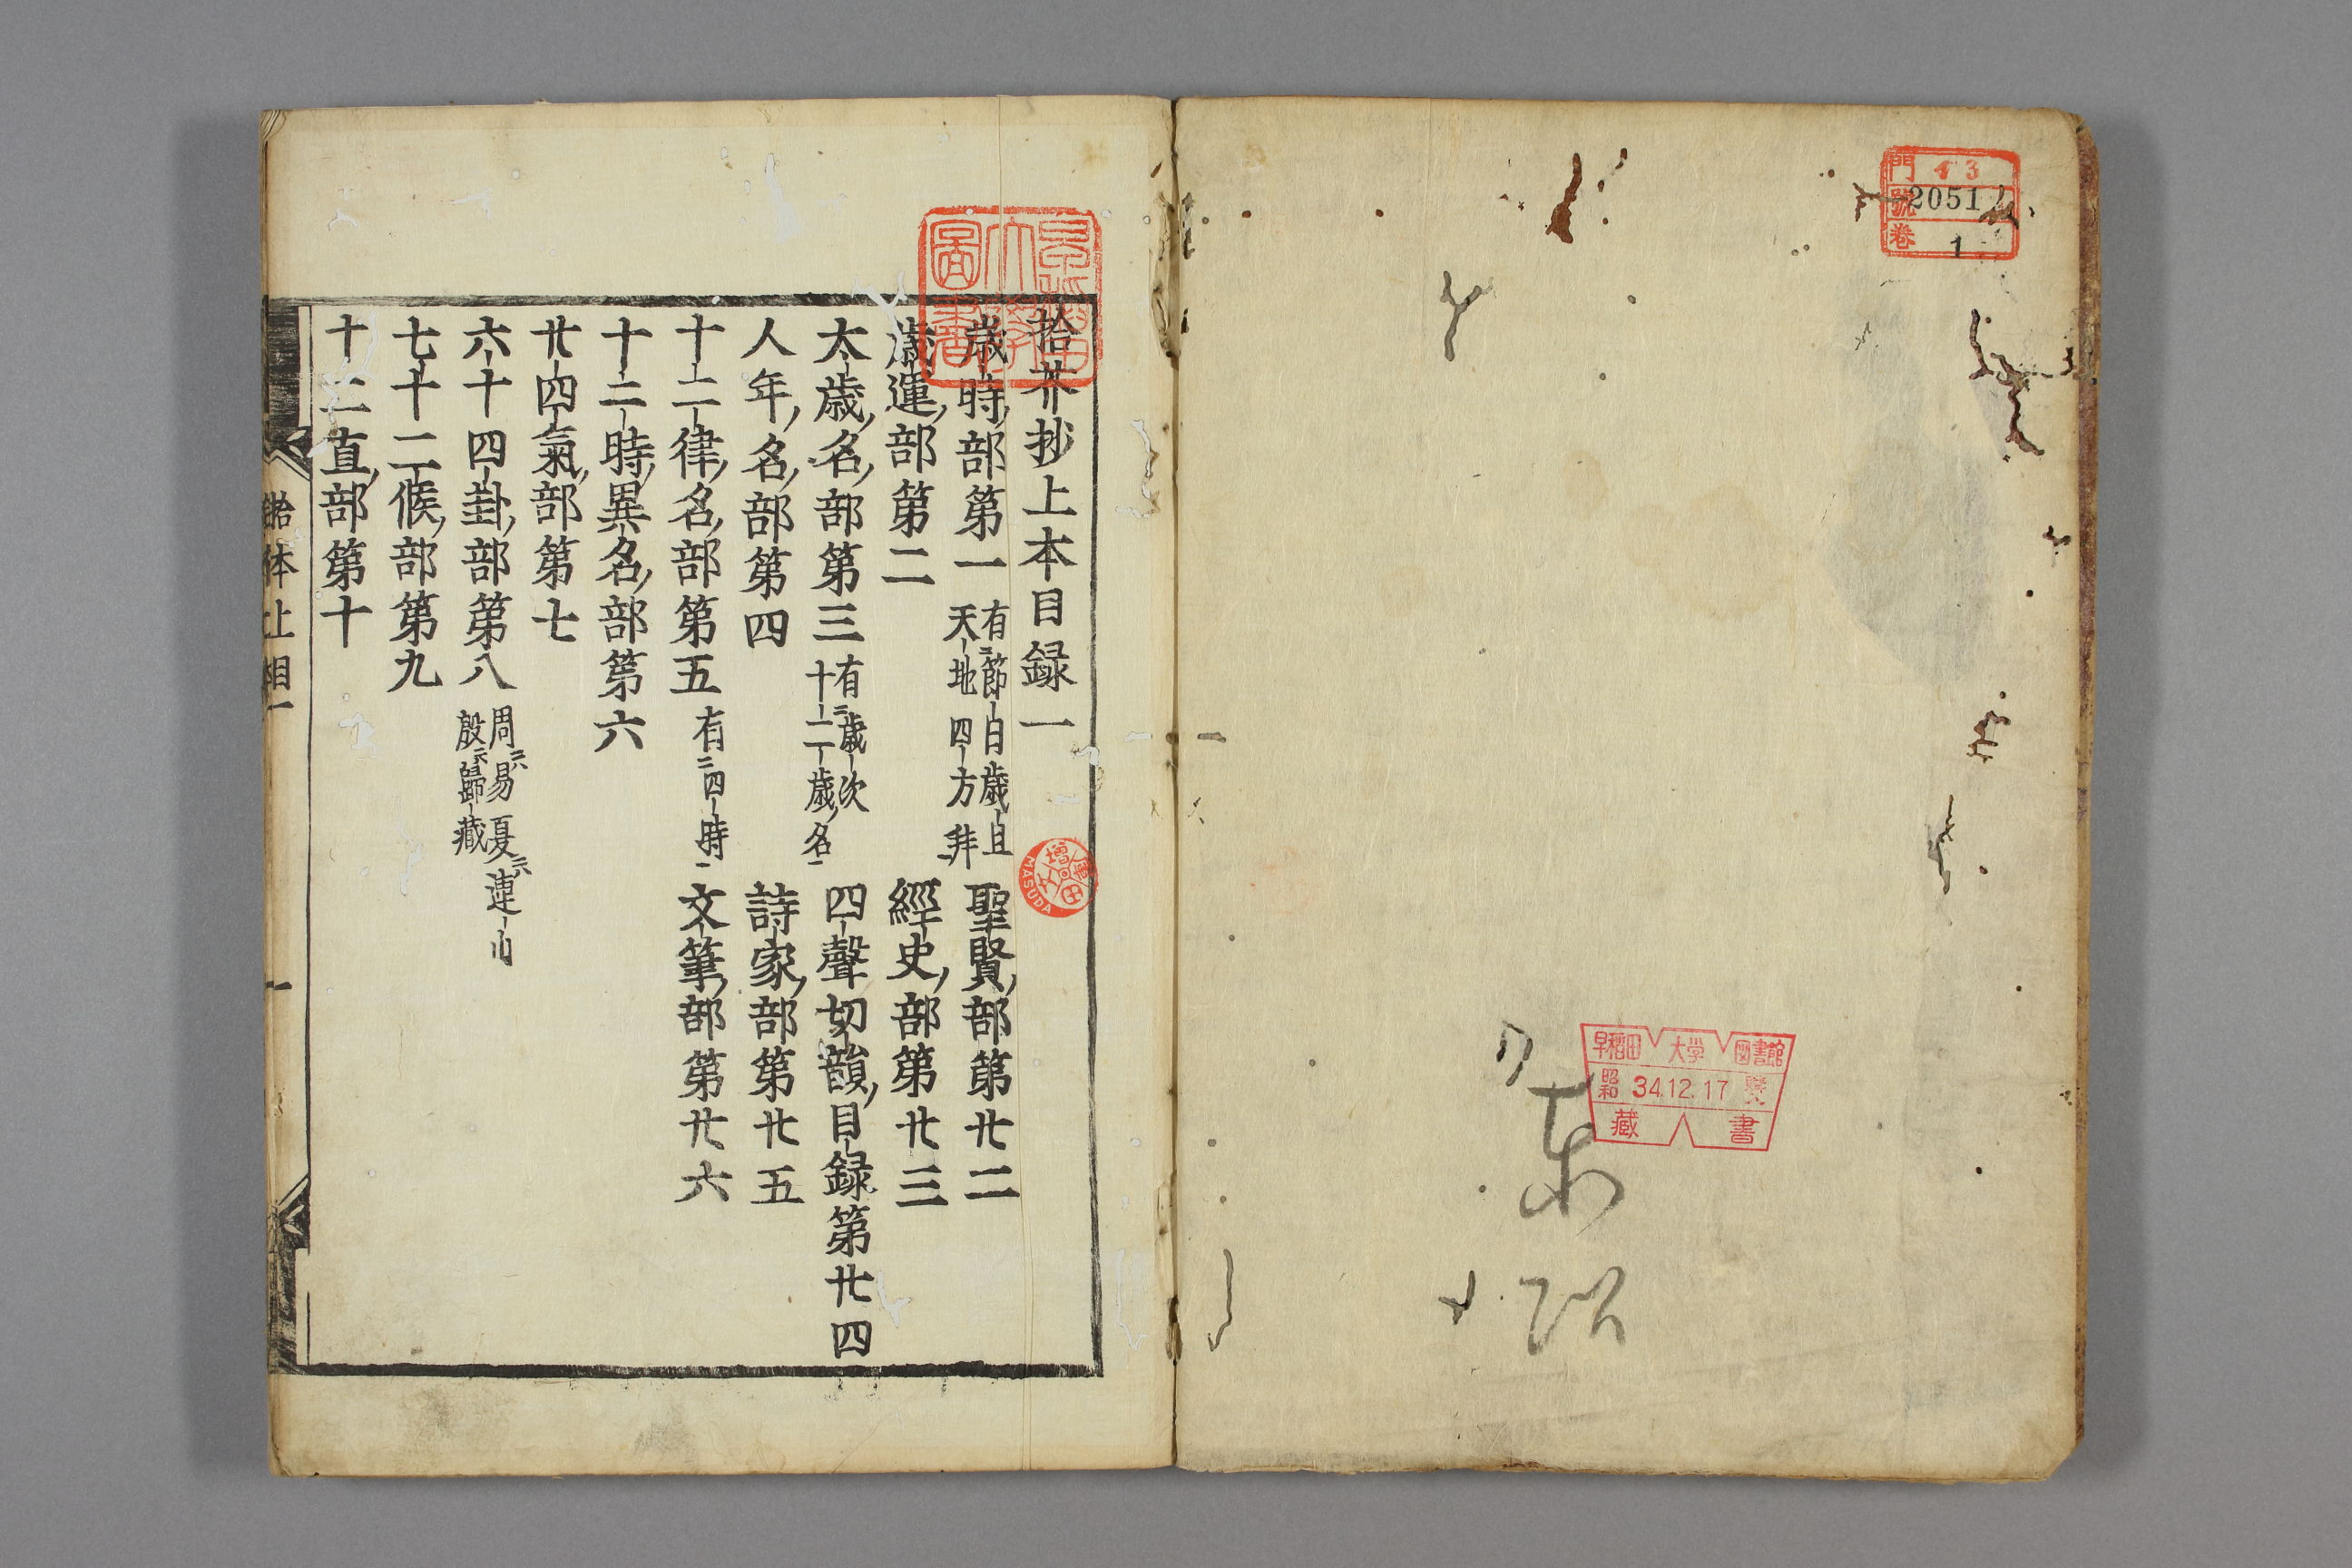 門 43
號 2051
卷 1
早稲田大学図書館
昭和 34.12.17
藏書
拾芥抄上本目録一
歳時部第一 有節白歳且
天地四方拜
聖賢部第廿二
歳運部第二
經史部第廿三
太歳名部第三 有歳次
十二歳名
四聲切韻目録第廿四
人年名部第四
詩家部第廿五
十二律名部第五 有四時
文筆部第廿六
十二時異名部第六
廿四氣部第七
六十四卦部第八 周易 夏連山
殷歸藏
七十二候部第九
十二直部第十
增田
MASUDA